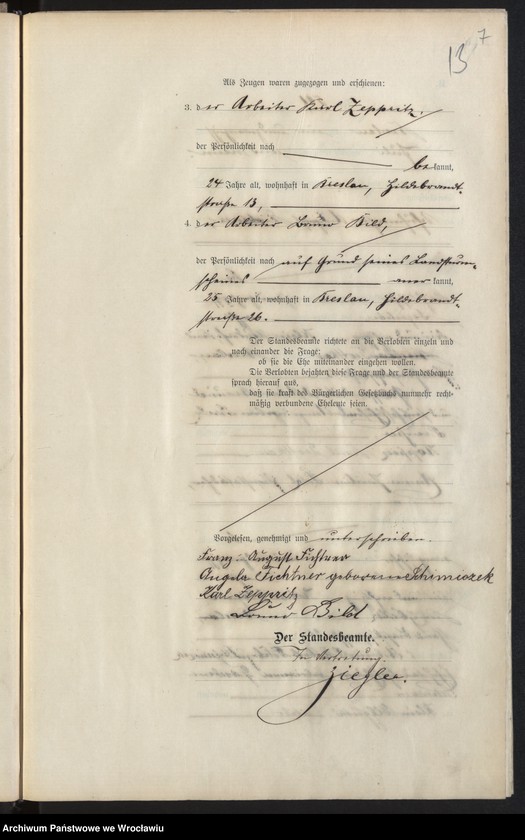 13 7
Als Zeugen waren zugezogen und erschienen:
3. der Arbeiter Karl Zeppritz.
der Persönlichkeit nach
bekannt,
24 Jahre alt, wohnhaft in Breslau, Hildebrandt-
straße 13,
4. der Arbeiter Bruno Bild,
der Persönlichkeit nach auf Grund seines Landsturm-
scheines anerkannt,
25 Jahre alt, wohnhaft in Breslau, Hildebrandt-
straße 26.
Der Standesbeamte richtete an die Verlobten einzeln und
nach einander die Frage:
ob sie die Ehe miteinander eingehen wollen.
Die Verlobten bejahten diese Frage und der Standesbeamte
sprach hierauf aus,
daß sie kraft des Bürgerlichen Gesetzbuchs nunmehr recht-
mäßig verbundene Eheleute seien.
Vorgelesen, genehmigt und unterschrieben.
Franz August Fichtner
Angela Fichtner geborene Schimiczek
Karl Zeppritz
Bruno Bild
Der Standesbeamte.
In Vertretung
Ziegler.
Archiwum Państwowe we Wrocławiu